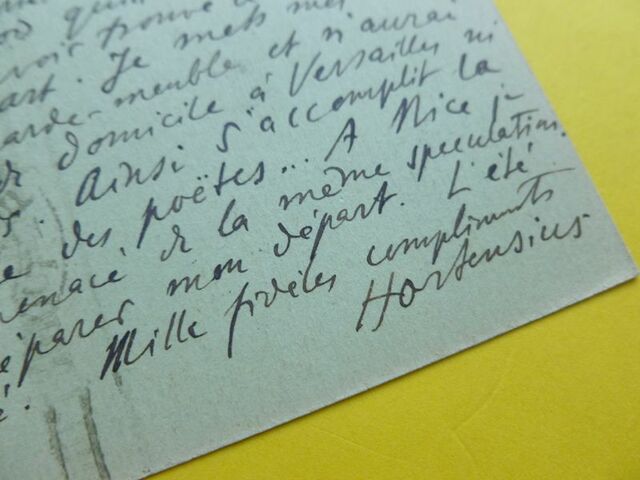 voir trouvé
art. Je mets mes
garde-meuble et n'aurai
domicile à Versailles ni
. Ainsi s'accomplit la
des poëtes... A Nice je
menacé de la même speculation.
éparer mon départ. L'été
é. Mille fidèles compliments
Hortensius